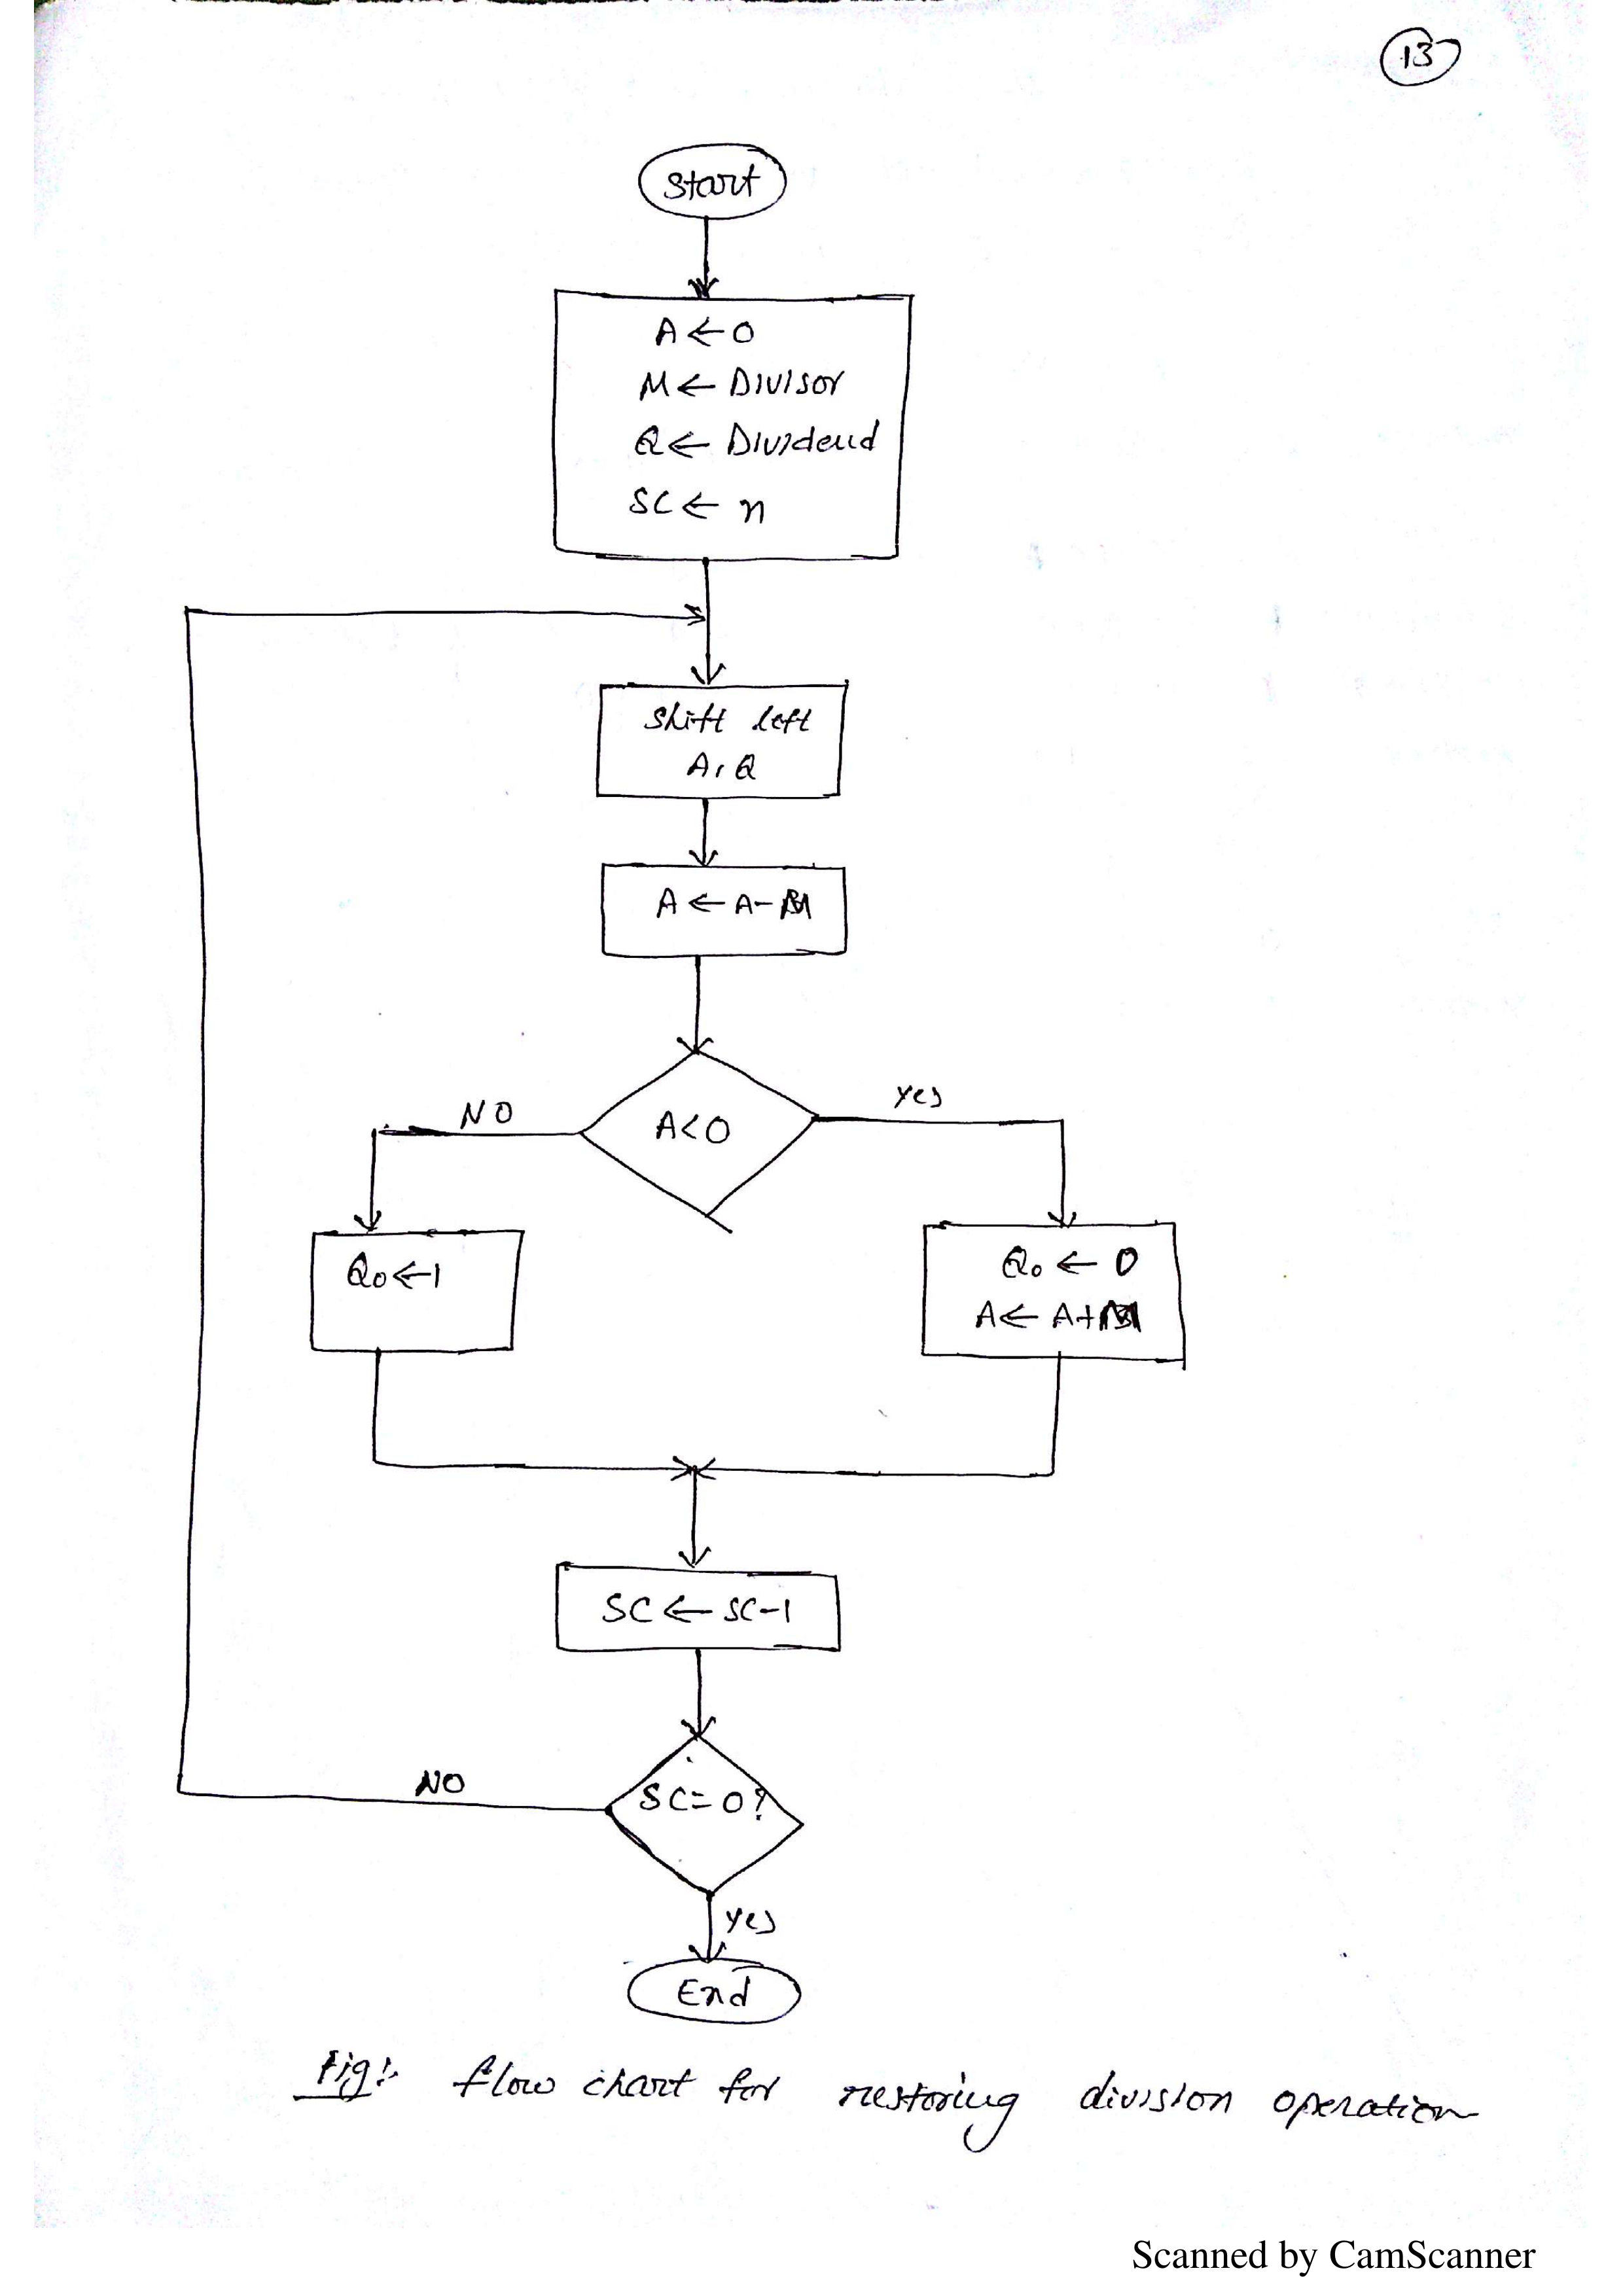 13
Start
A ← 0
M ← Divisor
Q ← Dividend
SC ← n
Shift left
A, Q
A ← A - M
A < 0
NO
Yes
Q0 ← 1
Q0 ← 0
A ← A + M
SC ← SC - 1
SC = 0?
NO
Yes
End
Fig: flow chart for restoring division operation
Scanned by CamScanner